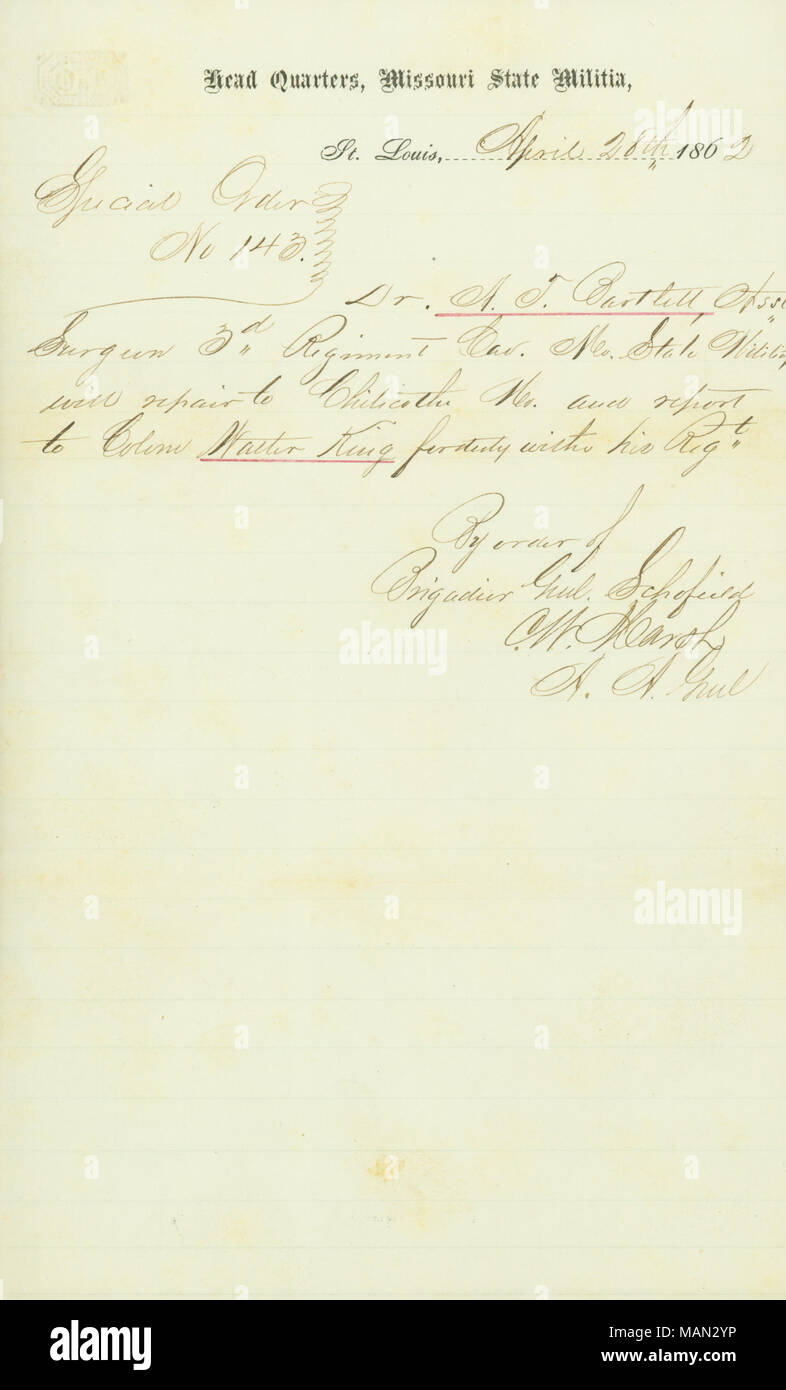 Head Quarters, Missouri State Militia,
St. Louis, April 28th 1862
Special Order
No 143.
Dr. A. T. Bartlett, Asst
Surgeon 3d Regiment Cav. Mo. State Militia
will repair to Chilicothe Mo. and report
to Colonl Walter King for duty with his Regt
By order of
Brigadier Genl. Schofield
C. W. Marsh
A. A. Genl
a
alamy
a
a
a
alamy
a
a
alamy
Image ID: MAN2YP
www.alamy.com